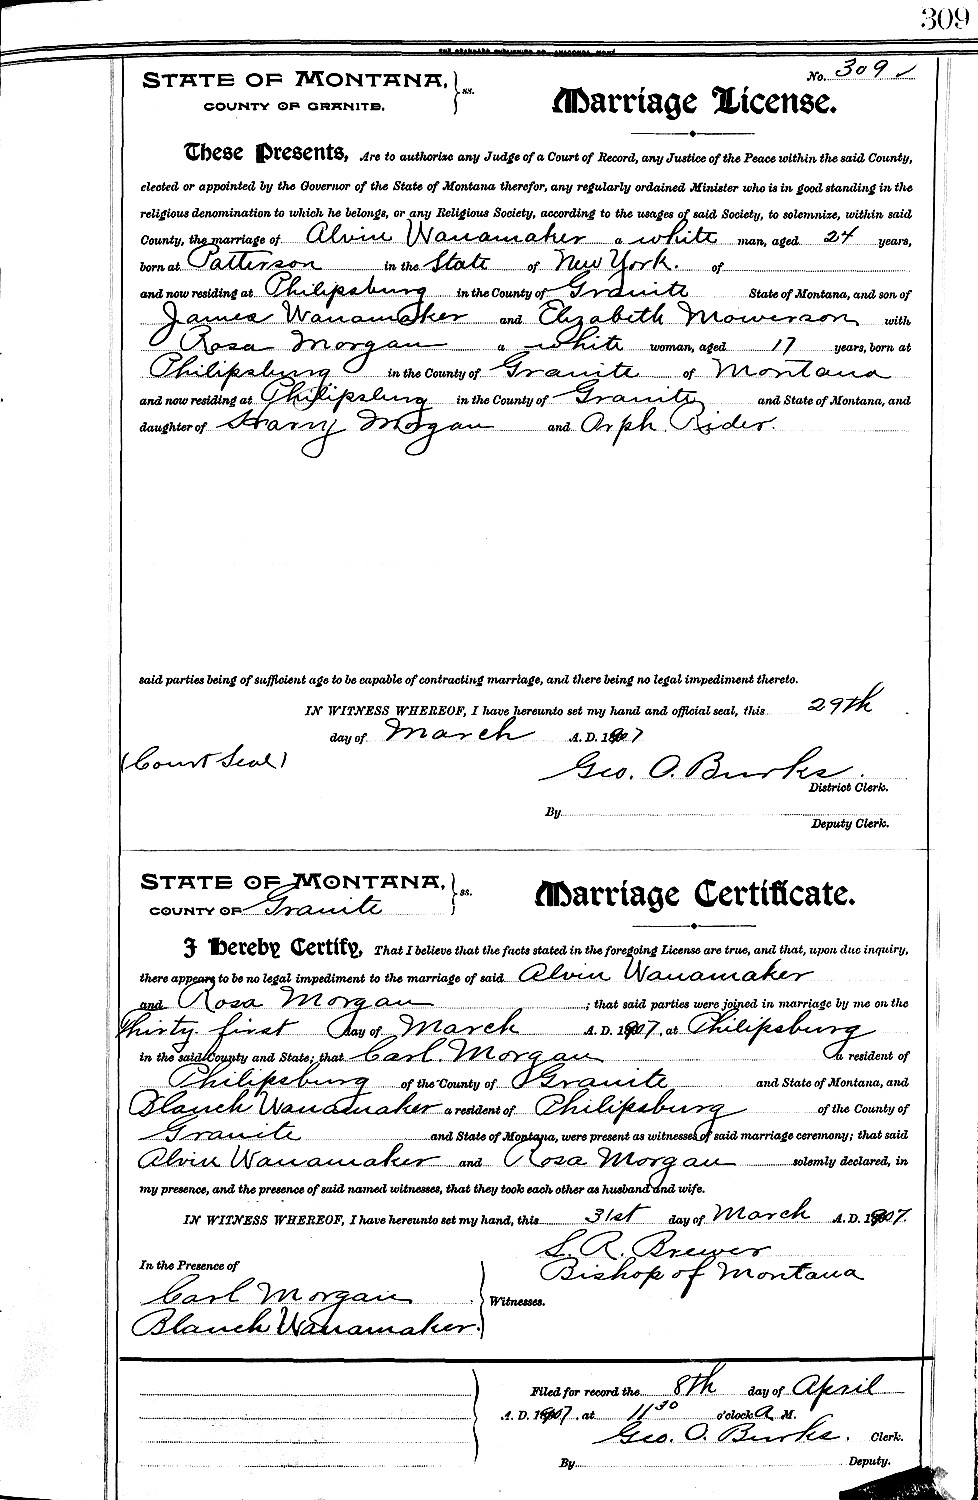 309
THE STANDARD PUBLISHING CO., ANACONDA, MONT.
STATE OF MONTANA, } ss.
COUNTY OF GRANITE.
No. 309
Marriage License.
These Presents, Are to authorize any Judge of a Court of Record, any Justice of the Peace within the said County,
elected or appointed by the Governor of the State of Montana therefor, any regularly ordained Minister who is in good standing in the
religious denomination to which he belongs, or any Religious Society, according to the usages of said Society, to solemnize, within said
County, the marriage of Alvin Wanamaker a white man, aged 24 years,
born at Patterson in the State of New York. of
and now residing at Philipsburg in the County of Granite State of Montana, and son of
James Wanamaker and Elizabeth Mowerson with
Rosa Morgan a white woman, aged 17 years, born at
Philipsburg in the County of Granite of Montana
and now residing at Philipsburg in the County of Granite and State of Montana, and
daughter of Harry Morgan and Orph Rider.
said parties being of sufficient age to be capable of contracting marriage, and there being no legal impediment thereto.
IN WITNESS WHEREOF, I have hereunto set my hand and official seal, this 29th
day of March A. D. 1907
(Court Seal)
Geo. O. Burks.
District Clerk.
By
Deputy Clerk.
STATE OF MONTANA, } ss.
COUNTY OF Granite
Marriage Certificate.
I Hereby Certify, That I believe that the facts stated in the foregoing License are true, and that, upon due inquiry,
there appears to be no legal impediment to the marriage of said Alvin Wanamaker
and Rosa Morgan ; that said parties were joined in marriage by me on the
Thirty first day of March A. D. 1907, at Philipsburg
in the said County and State; that Carl. Morgan a resident of
Philipsburg of the County of Granite and State of Montana, and
Blanch Wanamaker a resident of Philipsburg of the County of
Granite and State of Montana, were present as witnesses of said marriage ceremony; that said
Alvin Wanamaker and Rosa Morgan solemly declared, in
my presence, and the presence of said named witnesses, that they took each other as husband and wife.
IN WITNESS WHEREOF, I have hereunto set my hand, this 31st day of March A. D. 1907.
S. R. Brewer
Bishop of Montana
In the Presence of
Carl Morgan
Blanch Wanamaker.
} Witnesses.
Filed for record the 8th day of April
A. D. 1907, at 11 30 o'clock A. M.
Geo. O. Burks. Clerk.
By Deputy.